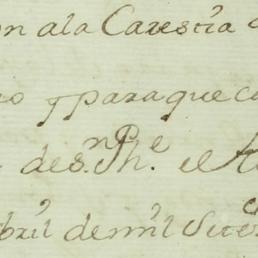 on ala Carestia
y para que
de S.n Ph.e el
bril de mil Sete